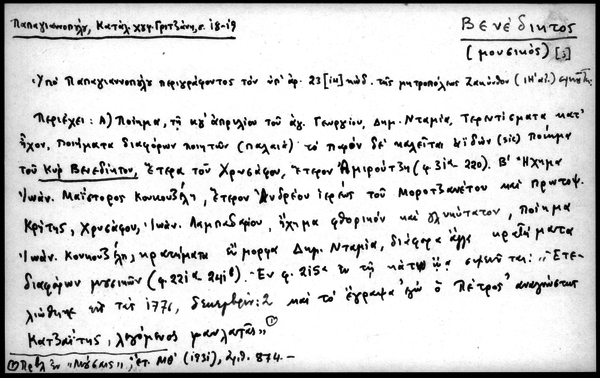 Παπαγιαννοπούλου, Κατάλ. χφφ. Γριτζάνη, σ. 18-19
Βενέδικτος
(μουσικός) [3]
Ὑπὸ Παπαγιαννοπούλου περιγράφοντος τὸν ὑπ' ἀρ. 23 [14] κώδ. τῆς μητροπόλεως Ζακύνθου (ΙΗ' αἰ.)
Περιέχει: Α) Ποίημα, τῇ κγ' ἀπριλίου τοῦ ἁγ. Γεωργίου, Δημ. Νταμία, Τερεντίσματα κατ'
ἦχον, ποιήματα διαφόρων ποιητῶν (παλαιὰ) τὸ παρὸν δὲ καλεῖται ἀϊδών (sic) ποίημα
τοῦ Κὺρ Βενεδίκτου, ἕτερα τοῦ Χρυσάφου, ἕτερον Ἀμιρούτζη (φ. 31α 220). Β' Ἤχημα
Ἰωάν. Μαΐστορος Κουκουζέλη, ἕτερον Ἀνδρέου ἱερέως τοῦ Μοροτζανέτου καὶ πρωτοψ.
Κρίτης, Χρυσάφου, Ἰωάν. Λαμπαδαρίου, ἤχημα φθορικὸν καὶ γλυκύτατον, ποίημα
Ἰωάν. Κουκουζέλη, κρατήματα Δημ. Νταμία, διάφορα ἄλλα κρατήματα
διαφόρων μουσικῶν (φ. 221α 241β). Ἐν φ. 215α ἐν τῇ κάτω ᾤᾳ σημειοῦται: "Ἐτε-
λιώθηκε εἰς τὰς 1776, δεκεμβρίου: 2 καὶ τὸ ἔγραψα ἐγὼ ὁ Πέτρος ἀναγνώστης
Κατζαΐτης, λεγόμενος μανλατᾶς" (1)
(1) Πρβλ. ἐν "Μούσαις", ἔτ. ΜΘ' (1931), ἀριθ. 874.-